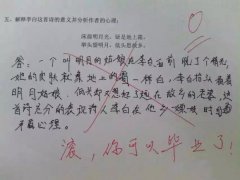 五、解释李白这首诗的意义并分析作者的心理:
床前明月光,疑是地上霜。
举头望明月,低头思故乡。
答:一个叫明月的姑娘在李白面前脱了个精光,
她的皮肤和地上的霜一样白,李白抬头放着
明月端模,低头却又想起了远在故乡的老婆,这
首诗充分的表现诗人李白在他乡
矛盾心理。
滚,你可以毕业了!
0